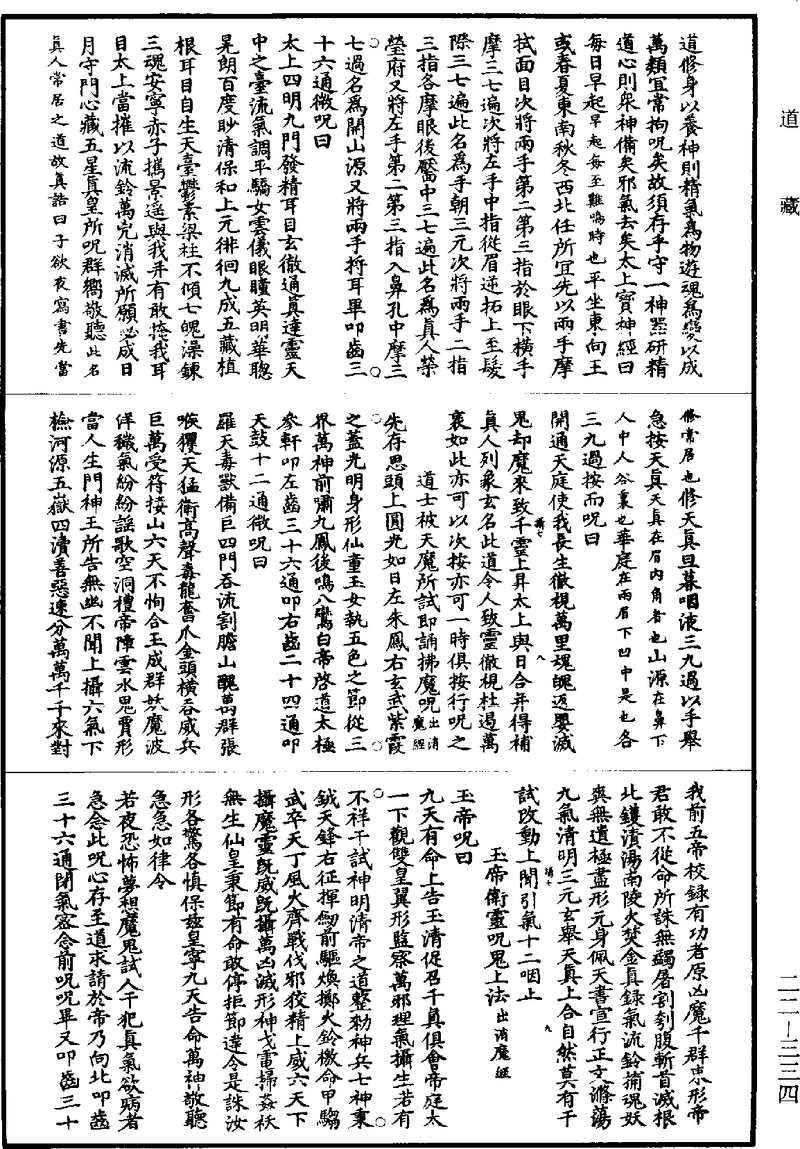 道藏
道修身以養神則精氣為物遊魂為變以成
萬類宜常拘呪矣故須存乎守一神器研精
道心則衆神備矣邪氣去矣太上寶神經曰
每日早起早起每至雞鳴時也平坐東向王
或春夏東南秋冬西北任所宜先以兩手摩
拭面目次將兩手第二第三指於眼下橫手
摩三七遍次將左手中指從眉逆拓上至髮
際三七遍此名為手朝三元次將兩手二指
三指各摩眼後𪖣中三七遍此名為真人榮
瑩府又將左手第二第三指入鼻孔中摩三
七過名為開山源又將兩手捋耳畢叩齒三
十六通微呪曰
太上四明九門發精耳目玄徹通真達靈天
中之臺流氣調平驕女雲儀眼瞳英明華聰
晃朗百度眇清保和上元徘徊九成五藏植
根耳目自生天臺鬱素梁柱不傾七魄澡鍊
三魂安寧赤子攜景遥與我并有敢掩我耳
目太上當摧以流鈴萬兇消滅所願必成日
月守門心藏五星真皇所呪群響敬聽此名
真人常居之道故真誥曰子欲夜寫書先當
修常居也修天真旦暮咽液三九過以手舉
急按天真天真在眉内角者也山源在鼻下
人中人谷裏也華庭在兩眉下凹中是也各
三九過按而呪曰
開通天庭使我長生徹視萬里魂魄返嬰滅
鬼却魔來致千靈上昇太上與日合并得補
真人列象玄名此道令人致靈徹視杜遏萬
裏如此亦可以次按亦可一時俱按行呪之
道士被天魔所試即誦拂魔呪出消魔經
先存思頭上圓光如日左朱鳳右玄武紫霞
之蓋光明身形仙童玉女執五色之節從三
界萬神前嘯九鳳後鳴八鸞白帝啓道太極
參軒叩左齒三十六通叩右齒二十四通叩
天鼓十二通微呪曰
羅天毒獸備巨四門吞流割膽山醜萬群張
喉玃天猛衛高聲毒龍奮爪金頭横吞威兵
巨萬受符接山六天不恂合王成群妖魔波
佯穢氣紛紛謡歌空洞檀帝陣雲水鬼賈形
當人生門神王所告無幽不聞上攝六氣下
檢河源五嶽四瀆善惡速分萬萬千千來對
我前五帝校録有功者原凶魔千群束形帝
君敢不從命所誅無蠲屠割刳腹斬首滅根
此鑊漬湯南陵火焚金真録氣流鈴捕魂妖
與無遺極盡形元身佩天書宣行正文滌蕩
九氣清明三元玄舉天真上合自然莫有干
試改動上聞引氣十二咽止
玉帝衛靈呪鬼上法出消魔經
玉帝呪曰
九天有命上告玉清促召千真俱會帝庭太
一下觀雙皇翼形監察萬邪理氣攝生若有
不祥干試神明清帝之道整勑神兵七神秉
鉞天鋒右征揮劒前驅煥擲火鈴檄命甲騶
武卒天丁風火齊戰伐邪狡精上威六天下
攝魔靈既威既攝萬凶滅形神戈雷掃姦袄
無生仙皇秉節有命敢停拒節違令是誅汝
形各驚各慎保兹皇寧九天告命萬神敬聽
急急如律令
若夜恐怖夢想魔鬼試人干犯真氣欲病者
急念此呪心存至道求請於帝乃向北叩齒
三十六通閉氣密念前呪呪畢又叩齒三十
二二—三三四